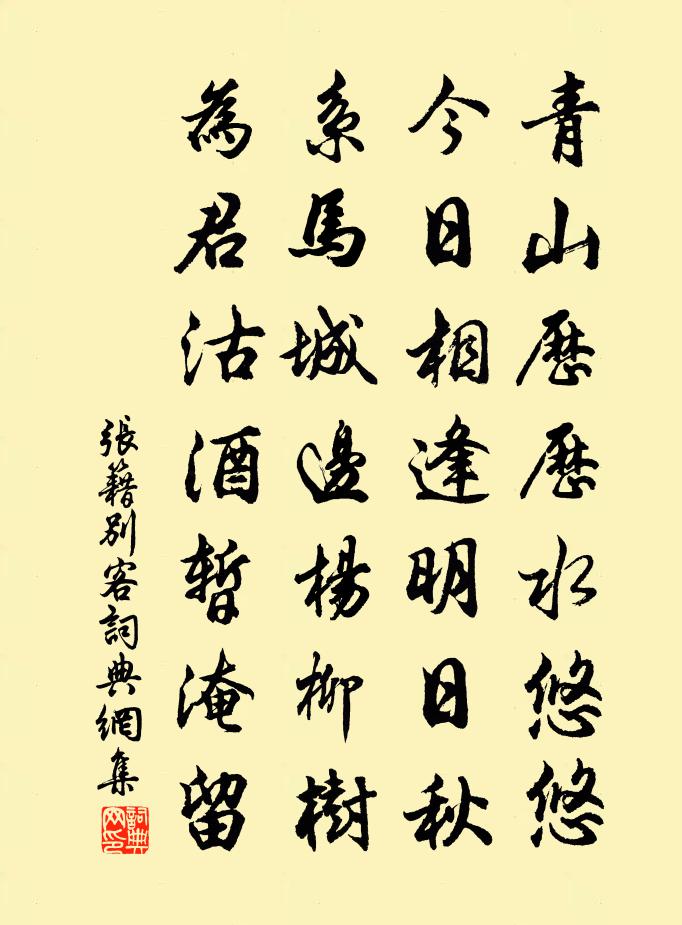 青山歷歷水悠悠
今日相逢明日秋
系馬城邊楊柳樹
為君沽酒暫淹留
張籍別客詞典網集
詞典网印